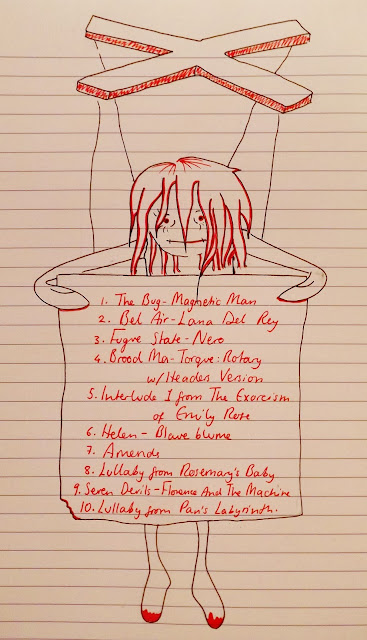 1. The Bug - Magnetic Man
2. Bel Air - Lana Del Rey
3. Fugue State - Nero
4. Brood Ma - Torque: Rotary
w/ Header Version
5. Interlude I from The Exorcism
of Emily Rose
6. Helen - Blaue blume
7. Amends
8. Lullaby from Rosemary's Baby
9. Seven Devils - Florence And The Machine
10. Lullaby from Pan's Labyrinth.